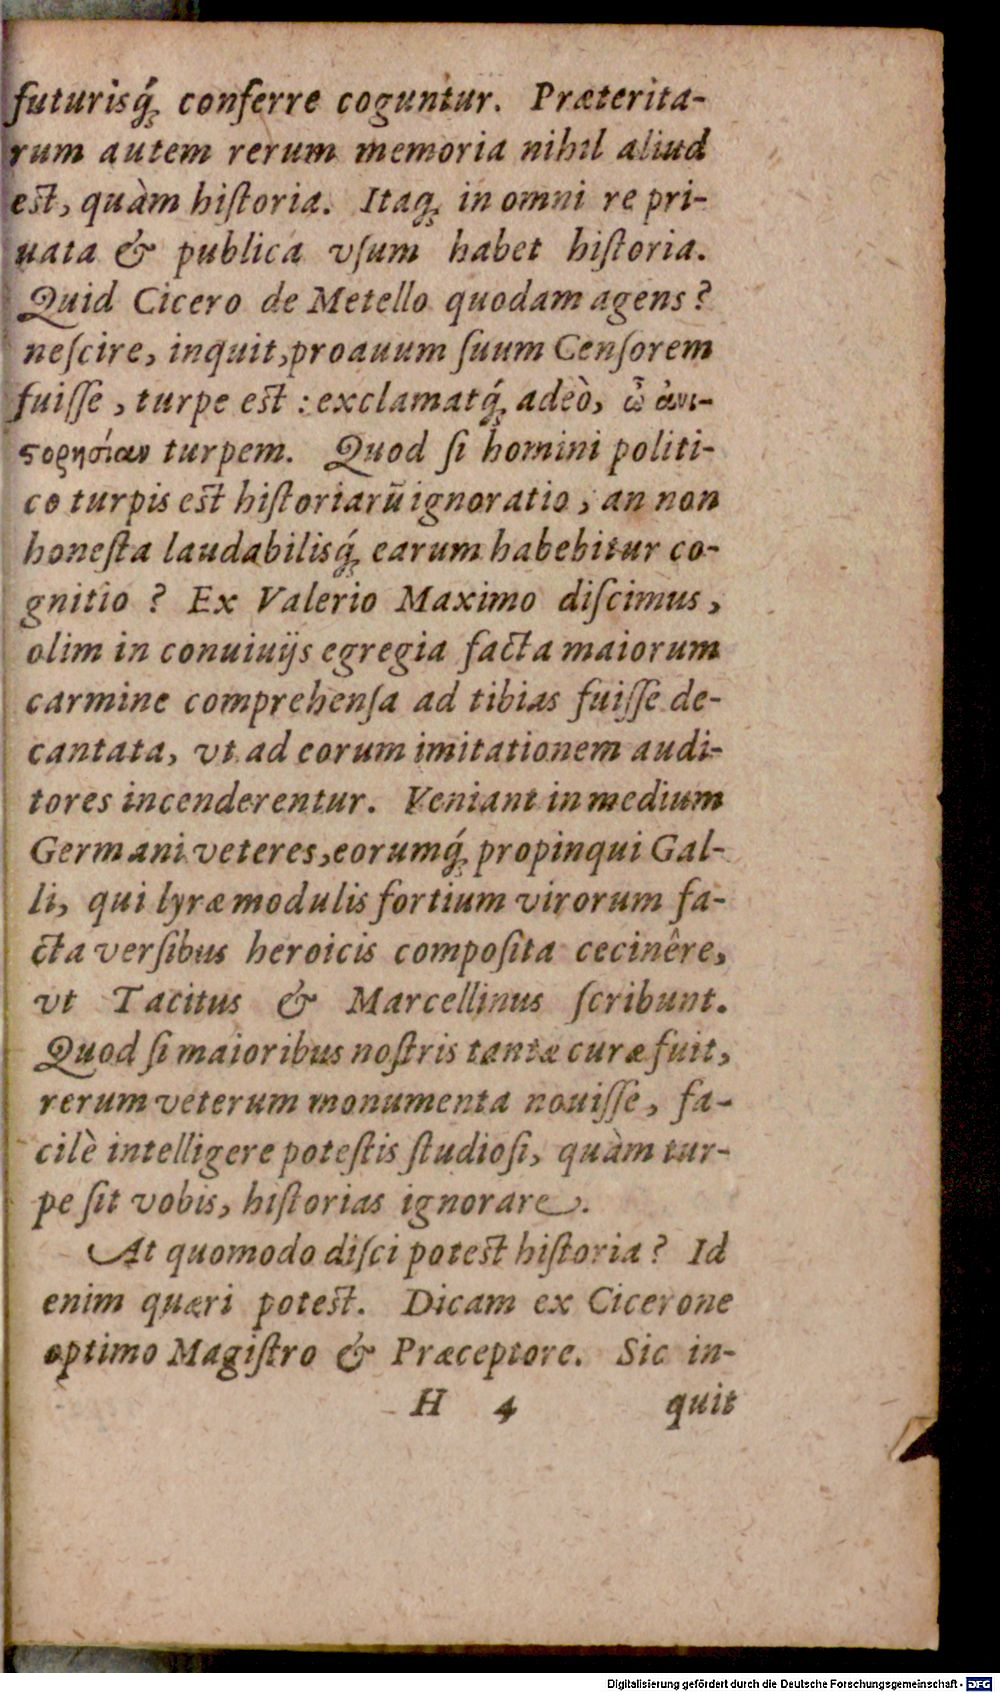 futurisq́; conferre coguntur. Præterita-
rum autem rerum memoria nihil aliud
est, quàm hiſtoria. Itaq; in omni re pri-
uata & publica vſum habet hiſtoria.
Quid Cicero de Metello quodam agens?
neſcire, inquit, proauum ſuum Cenſorem
fuiſſe, turpe est: exclamatq́; adeò, ὦ ἀνι-
ϛορησίαν turpem. Quod ſi homini politi-
co turpis est hiſtoriarũ ignoratio, an non
honeſta laudabilisq́; earum habebitur co-
gnitio? Ex Valerio Maximo diſcimus,
olim in conuiuijs egregia facta maiorum
carmine comprehenſa ad tibias fuiſſe de-
cantata, vt ad eorum imitationem audi-
tores incenderentur. Veniant in medium
Germani veteres, eorumq́; propinqui Gal-
li, qui lyræ modulis fortium virorum fa-
cta verſibus heroicis compoſita cecinêre,
vt Tacitus & Marcellinus ſcribunt.
Quod ſi maioribus noſtris tantæ curæ fuit,
rerum veterum monumenta nouiſſe, fa-
cilè intelligere poteſtis ſtudioſi, quàm tur-
pe ſit vobis, hiſtorias ignorare.
At quomodo diſci potest hiſtoria? Id
enim quæri potest. Dicam ex Cicerone
optimo Magiſtro & Præceptore. Sic in-
H 4 quit
Digitalisierung gefördert durch die Deutsche Forschungsgemeinschaft - DFG